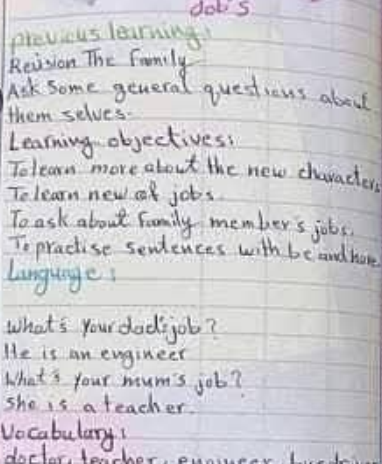 Jobs
previous learning:
Revision The Family
Ask Some general questions about
them selves.
Learning objectives:
To learn more about the new characters
To learn new of jobs.
To ask about family member's jobs.
To practise sentences with be and have
Language:
What's your dad's job?
He is an engineer
What's your mum's job?
She is a teacher.
Vocabulary:
doctor, teacher, engineer,